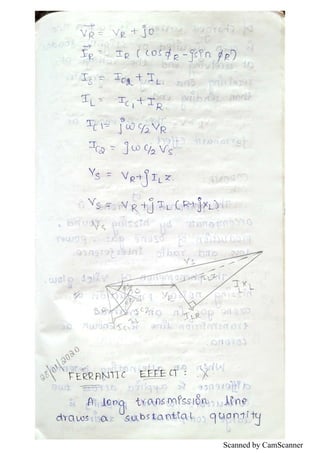 V⃗R = VR + j0
I⃗R = IR (cosϕR - jsin ϕR)
IS = IC2 + IL
IL = IC1 + IR
IC1 = jωC/2 VR
IC2 = jωC/2 VS
VS = VR + j IL Z
VS = VR + j IL (R + jXL)
VS
VS
IXL
VR
ILR
25/01/2020
FERRANTIC EFFECT :
A long transmission line
draws a substantial quantity
Scanned by CamScanner